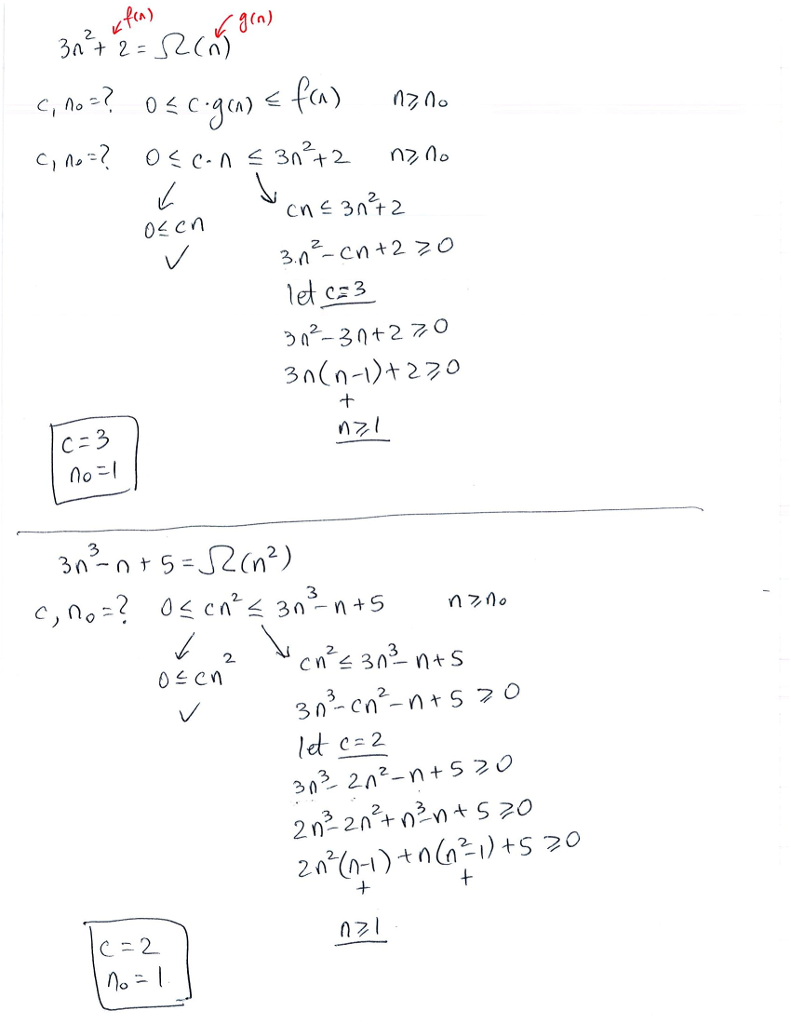 f(n) g(n)
3n² + 2 = Ω(n)
c, n₀ = ? 0 ≤ c·g(n) ≤ f(n) n ≥ n₀
c, n₀ = ? 0 ≤ c·n ≤ 3n² + 2 n ≥ n₀
↙ ↘
0 ≤ cn
✓
cn ≤ 3n² + 2
3n² - cn + 2 ≥ 0
let c = 3
3n² - 3n + 2 ≥ 0
3n(n-1) + 2 ≥ 0
+
n ≥ 1
c = 3
n₀ = 1
3n³ - n + 5 = Ω(n²)
c, n₀ = ? 0 ≤ cn² ≤ 3n³ - n + 5 n ≥ n₀
↙ ↘
0 ≤ cn²
✓
cn² ≤ 3n³ - n + 5
3n³ - cn² - n + 5 ≥ 0
let c = 2
3n³ - 2n² - n + 5 ≥ 0
2n³ - 2n² + n³ - n + 5 ≥ 0
2n²(n-1) + n(n²-1) + 5 ≥ 0
+ +
n ≥ 1
c = 2
n₀ = 1